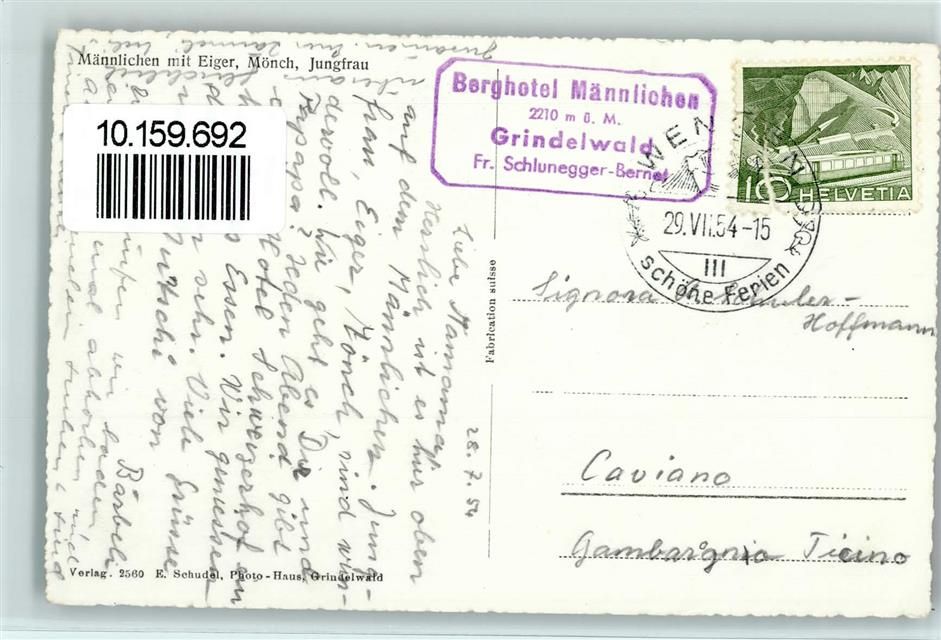 Männlichen mit Eiger, Mönch, Jungfrau
10.159.692
Berghotel Männlichen
2210 m ü. M.
Grindelwald
Fr. Schlunegger-Bernet
WENGEN
29.VII.54-15
III
schöne Ferien
10 HELVETIA
Fabrication suisse
28.7.54
Liebe Mammama!
Herrlich ist es hier oben
auf dem Männlichen. Jung-
frau, Eiger, Mönch, sind wun-
dervoll. Wie geht es Dir und
Papapa? Jeden Abend gibt
Hotel Schweizerhof ein
Essen. Wir geniessen
sehr. Viele Grüsse
von
Bärbeli
wir baden
mal abholen und
Signora
Hoffmann
Caviano
Gambarogno Ticino
Verlag. 2560 E. Schudel, Photo-Haus, Grindelwald